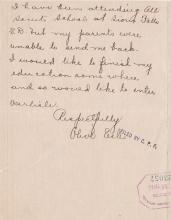 I have been attending All
Saints School at Sioux Falls
S.D. but my parents were
unable to send me back.
I would like to finish my
education some where
and so would like to enter
Carlisle.
Respectfully
Olive